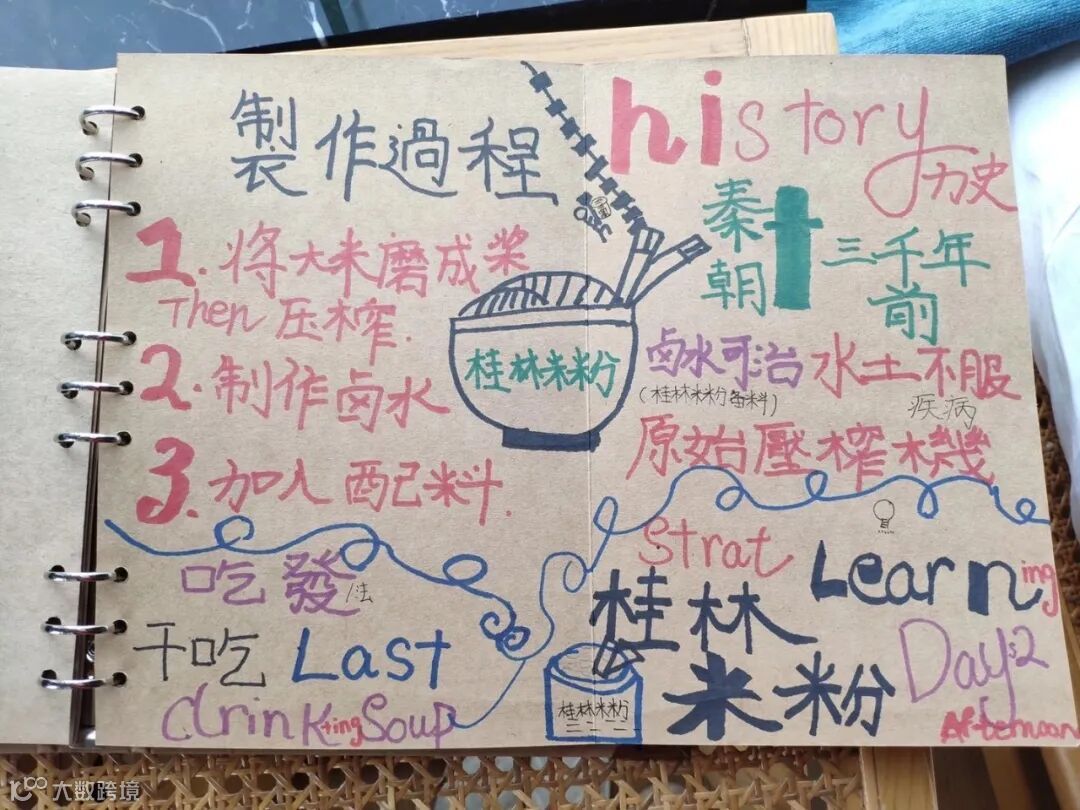 製作過程
1.将大米磨成浆
Then压榨.
2.制作卤水
3.加入配料.
吃發
法
干吃 Last
drinkting Soup
桂林米粉
history
历史
秦朝
三千年前
卤水可治水土不服
(桂林米粉备料)
疾病
原始壓榨機
Strat Learning
桂林米粉
Days2
Afternoon
桂林米粉
大数跨境